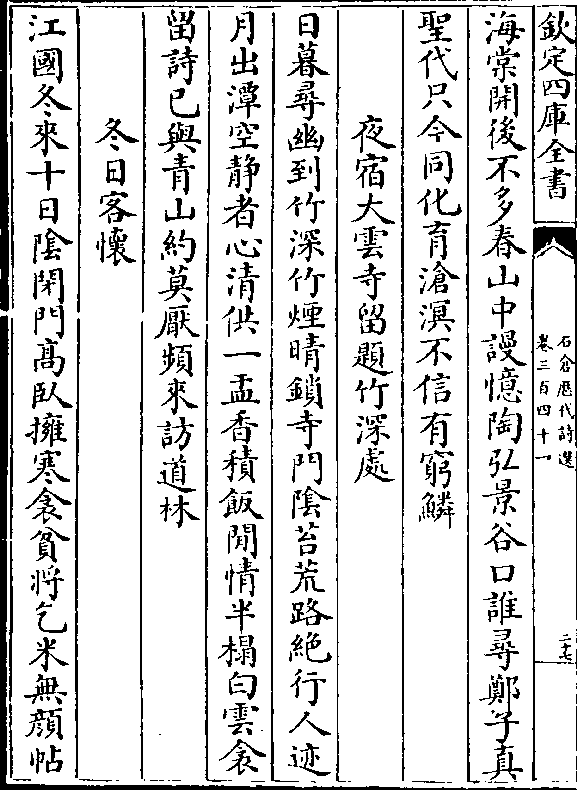 欽定四庫全書
石倉歷代詩選
卷三百四十一
二十七
海棠開後不多春山中謾憶陶弘景谷口誰尋鄭子真
聖代只今同化育滄溟不信有窮鱗
夜宿大雲寺留題竹深處
日暮尋幽到竹深竹煙晴鎖寺門陰苔荒路絶行人迹
月出潭空静者心清供一盂香積飯閒情半榻白雲衾
留詩已與青山約莫厭頻來訪道林
冬日客懷
江國冬來十日陰閉門髙臥擁寒衾貧將乞米無顔帖